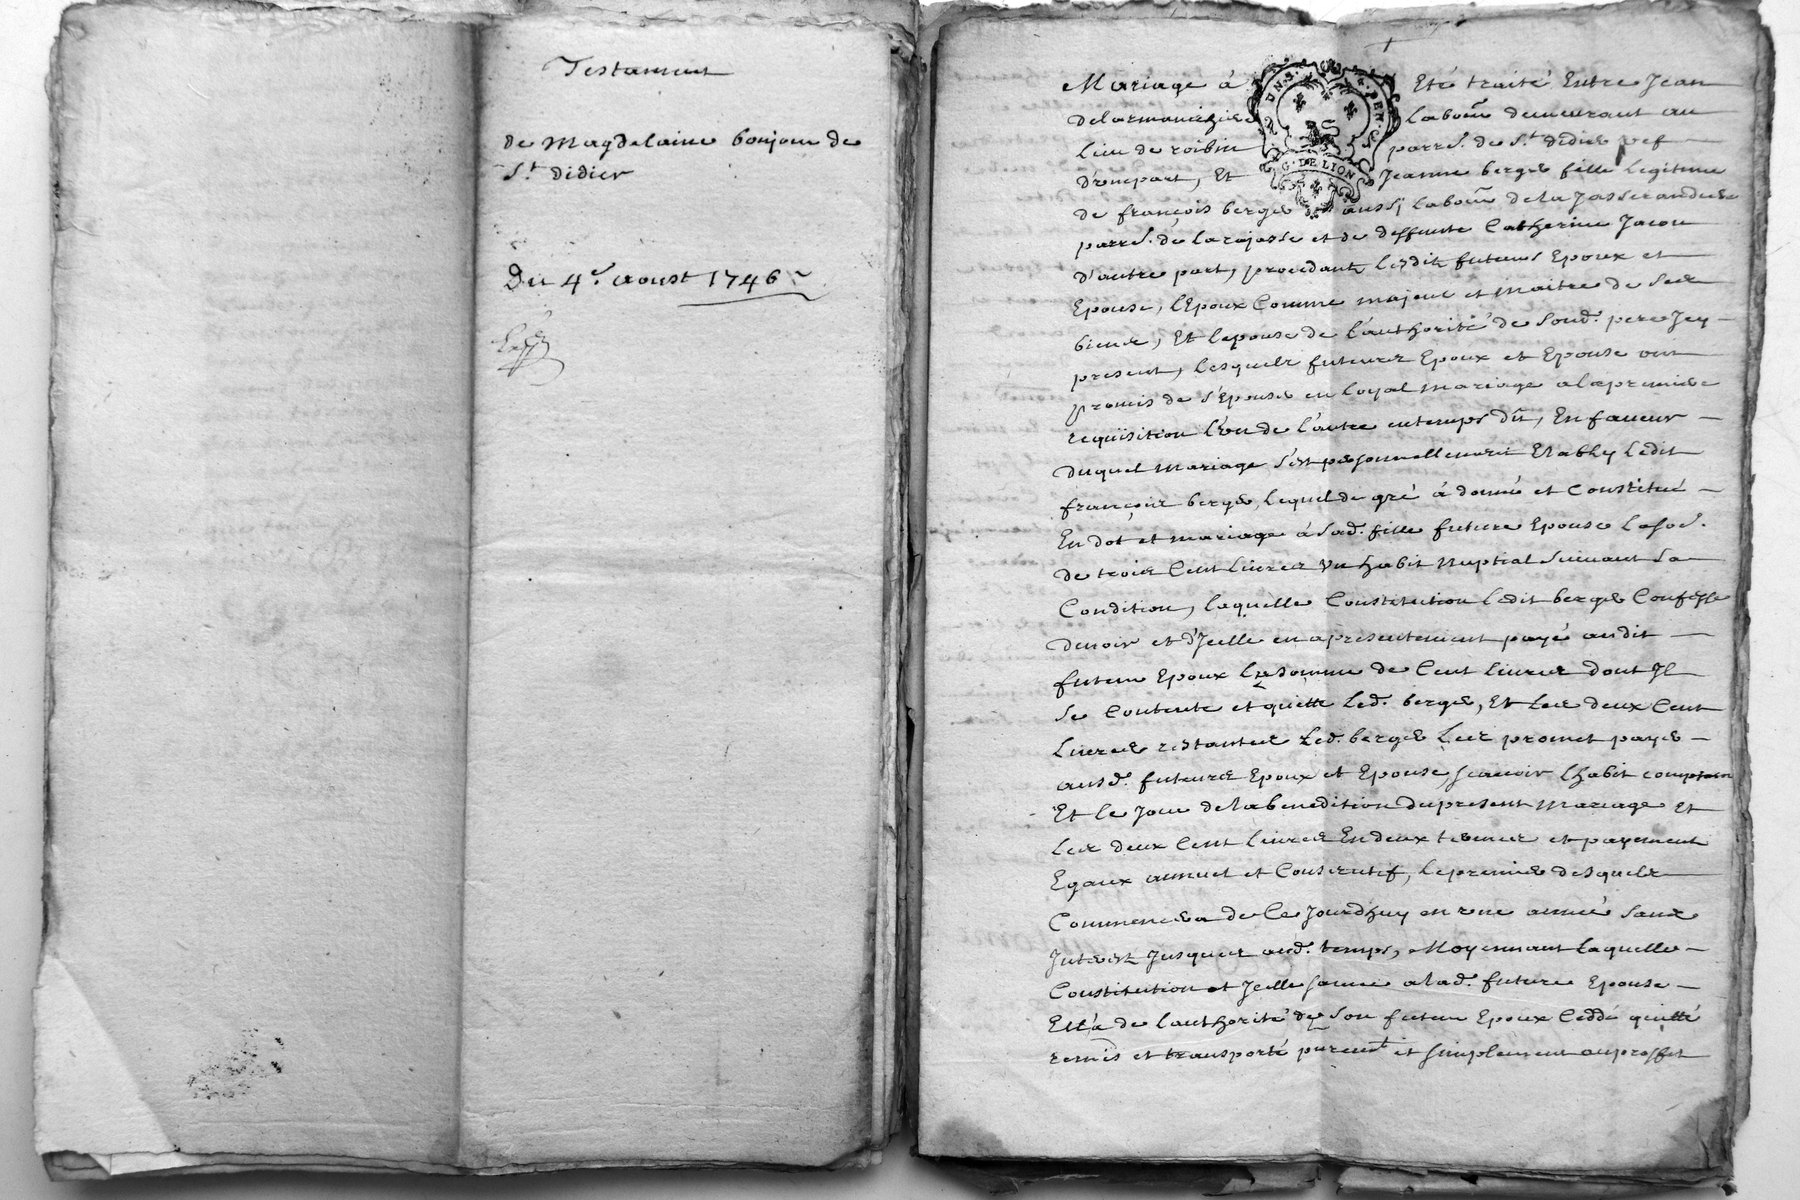 Testament
de Magdelaine bonjour de
St. didier
Du 4e. aoust 1746
Mariage à Eté traité Entre Jean
delarmanergie labour. demeurant au
Lieu de roibin parr̃. de St. didier
d'unepart, Et Jeanne berger fille legitime
de françois berger aussj labour. de la Jasserandiere
parr̃. de larajasse et de deffunte Catherine Jacon
d'autre part, procedants lesdits futeurs Epoux et
Epouse, l'Epoux Comme majeur et maitre de ses
biens, Et lepouse de l'authorité de Sond. pere Jcy
present, lesquels futeurs Epoux et Epouse ont
promis de s'Epouser en loyal mariage alapremiere
requisition l'un de l'autre entemps dû, En faveur
duquel mariage s'est personnellement Etably Ledit
françois berger, lequel de gré à donné et Constitué
En dot et mariage à sad. fille future Epouse la so͞e.
de trois Cent livres un habit Nuptial Suivant sa
Condition, laquelle Constitution ledit berger Confesse
devoir et d'Jcelle en apresentement payé audit
futeur Epoux la somme de Cent livres dont Jl
se Contente et quitte led. berger, Et les deux Cent
livres restantes led. berger les promet payer
ausd. futeurs Epoux et Epouse, scavoir lhabit comptant
Et le Jour de la benedition dupresent mariage et
les deux Cent livres En deux termes et payement
Egaux annuel et Consecutif, le premier desquels
Commencera de Ce Jourdhuy en une année sans
Interest Jusques aud. temps, Moyennant laquelle
Constitution et Jcelle sauve alad. future Epouse
Ella de lauthorité de son futeur Epoux Ceddé quitté
remis et transporté puremt. et simplement auproffit
G. DE LION